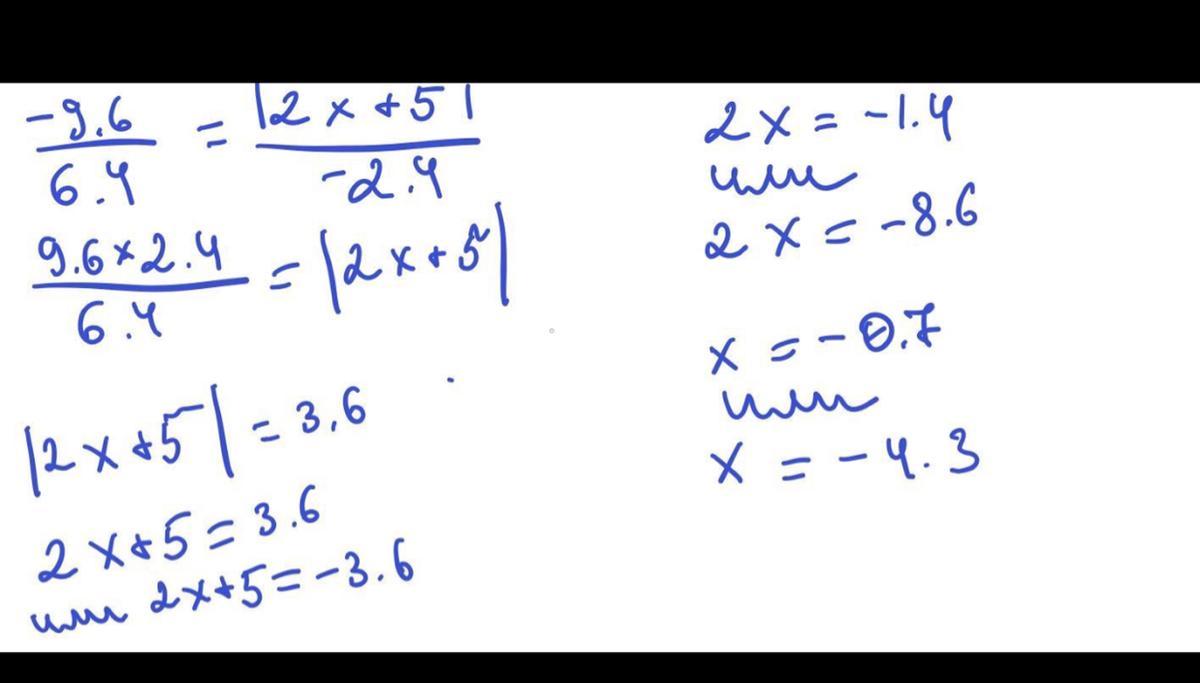 -9.6/6.4 = |2x+5|/-2.4
9.6×2.4/6.4 = |2x+5|
|2x+5| = 3.6
2x+5 = 3.6
или 2x+5 = -3.6
2x = -1.4
или
2x = -8.6
x = -0.7
или
x = -4.3